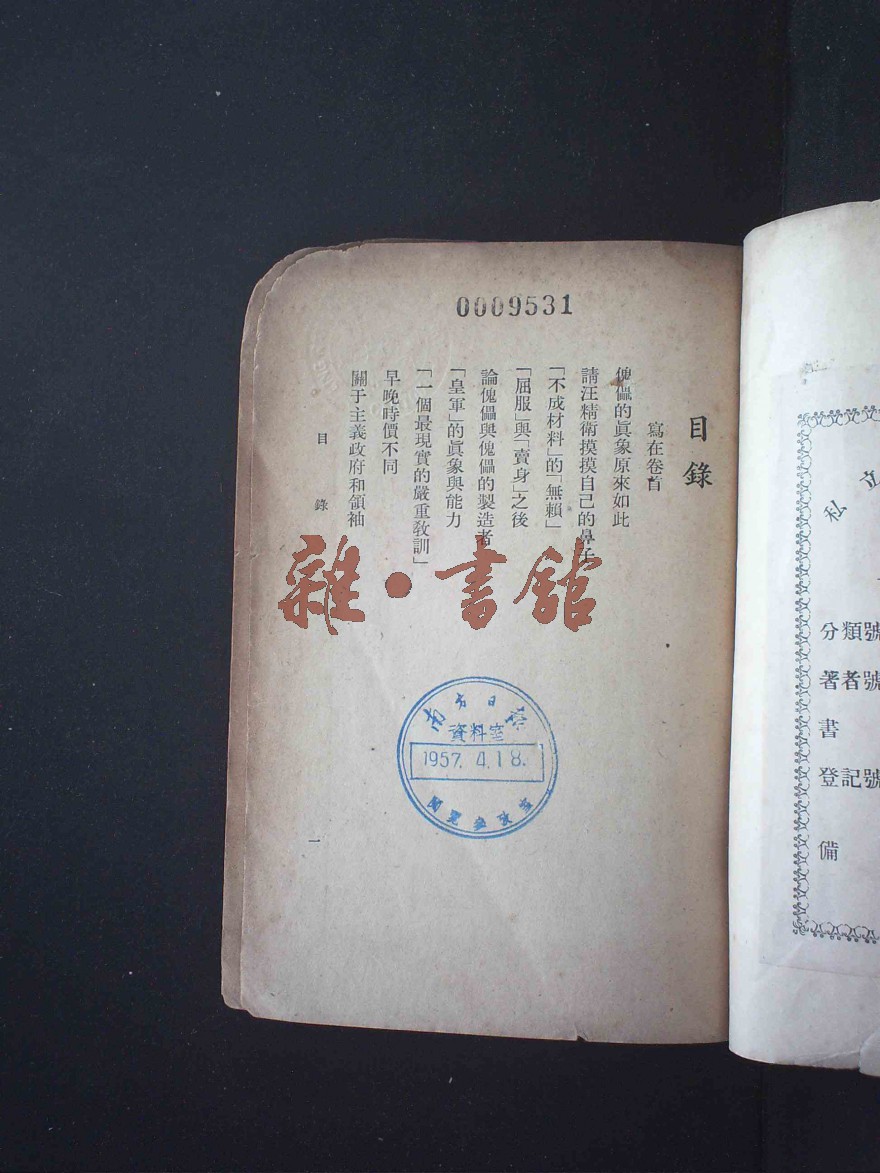 0009531
目錄
寫在卷首
傀儡的眞象原來如此
請汪精衛摸摸自己的鼻子
「不成材料」的「無賴」
「屈服」與「賣身」之後
論傀儡與傀儡的製造者
「皇軍」的眞象與能力
「一個最現實的嚴重敎訓」
早晚時價不同
關于主義政府和領袖
目錄
一
雜·書館
南方日報
資料室
1957. 4. 18.
私立
分類號
著者號
書
登記號
備